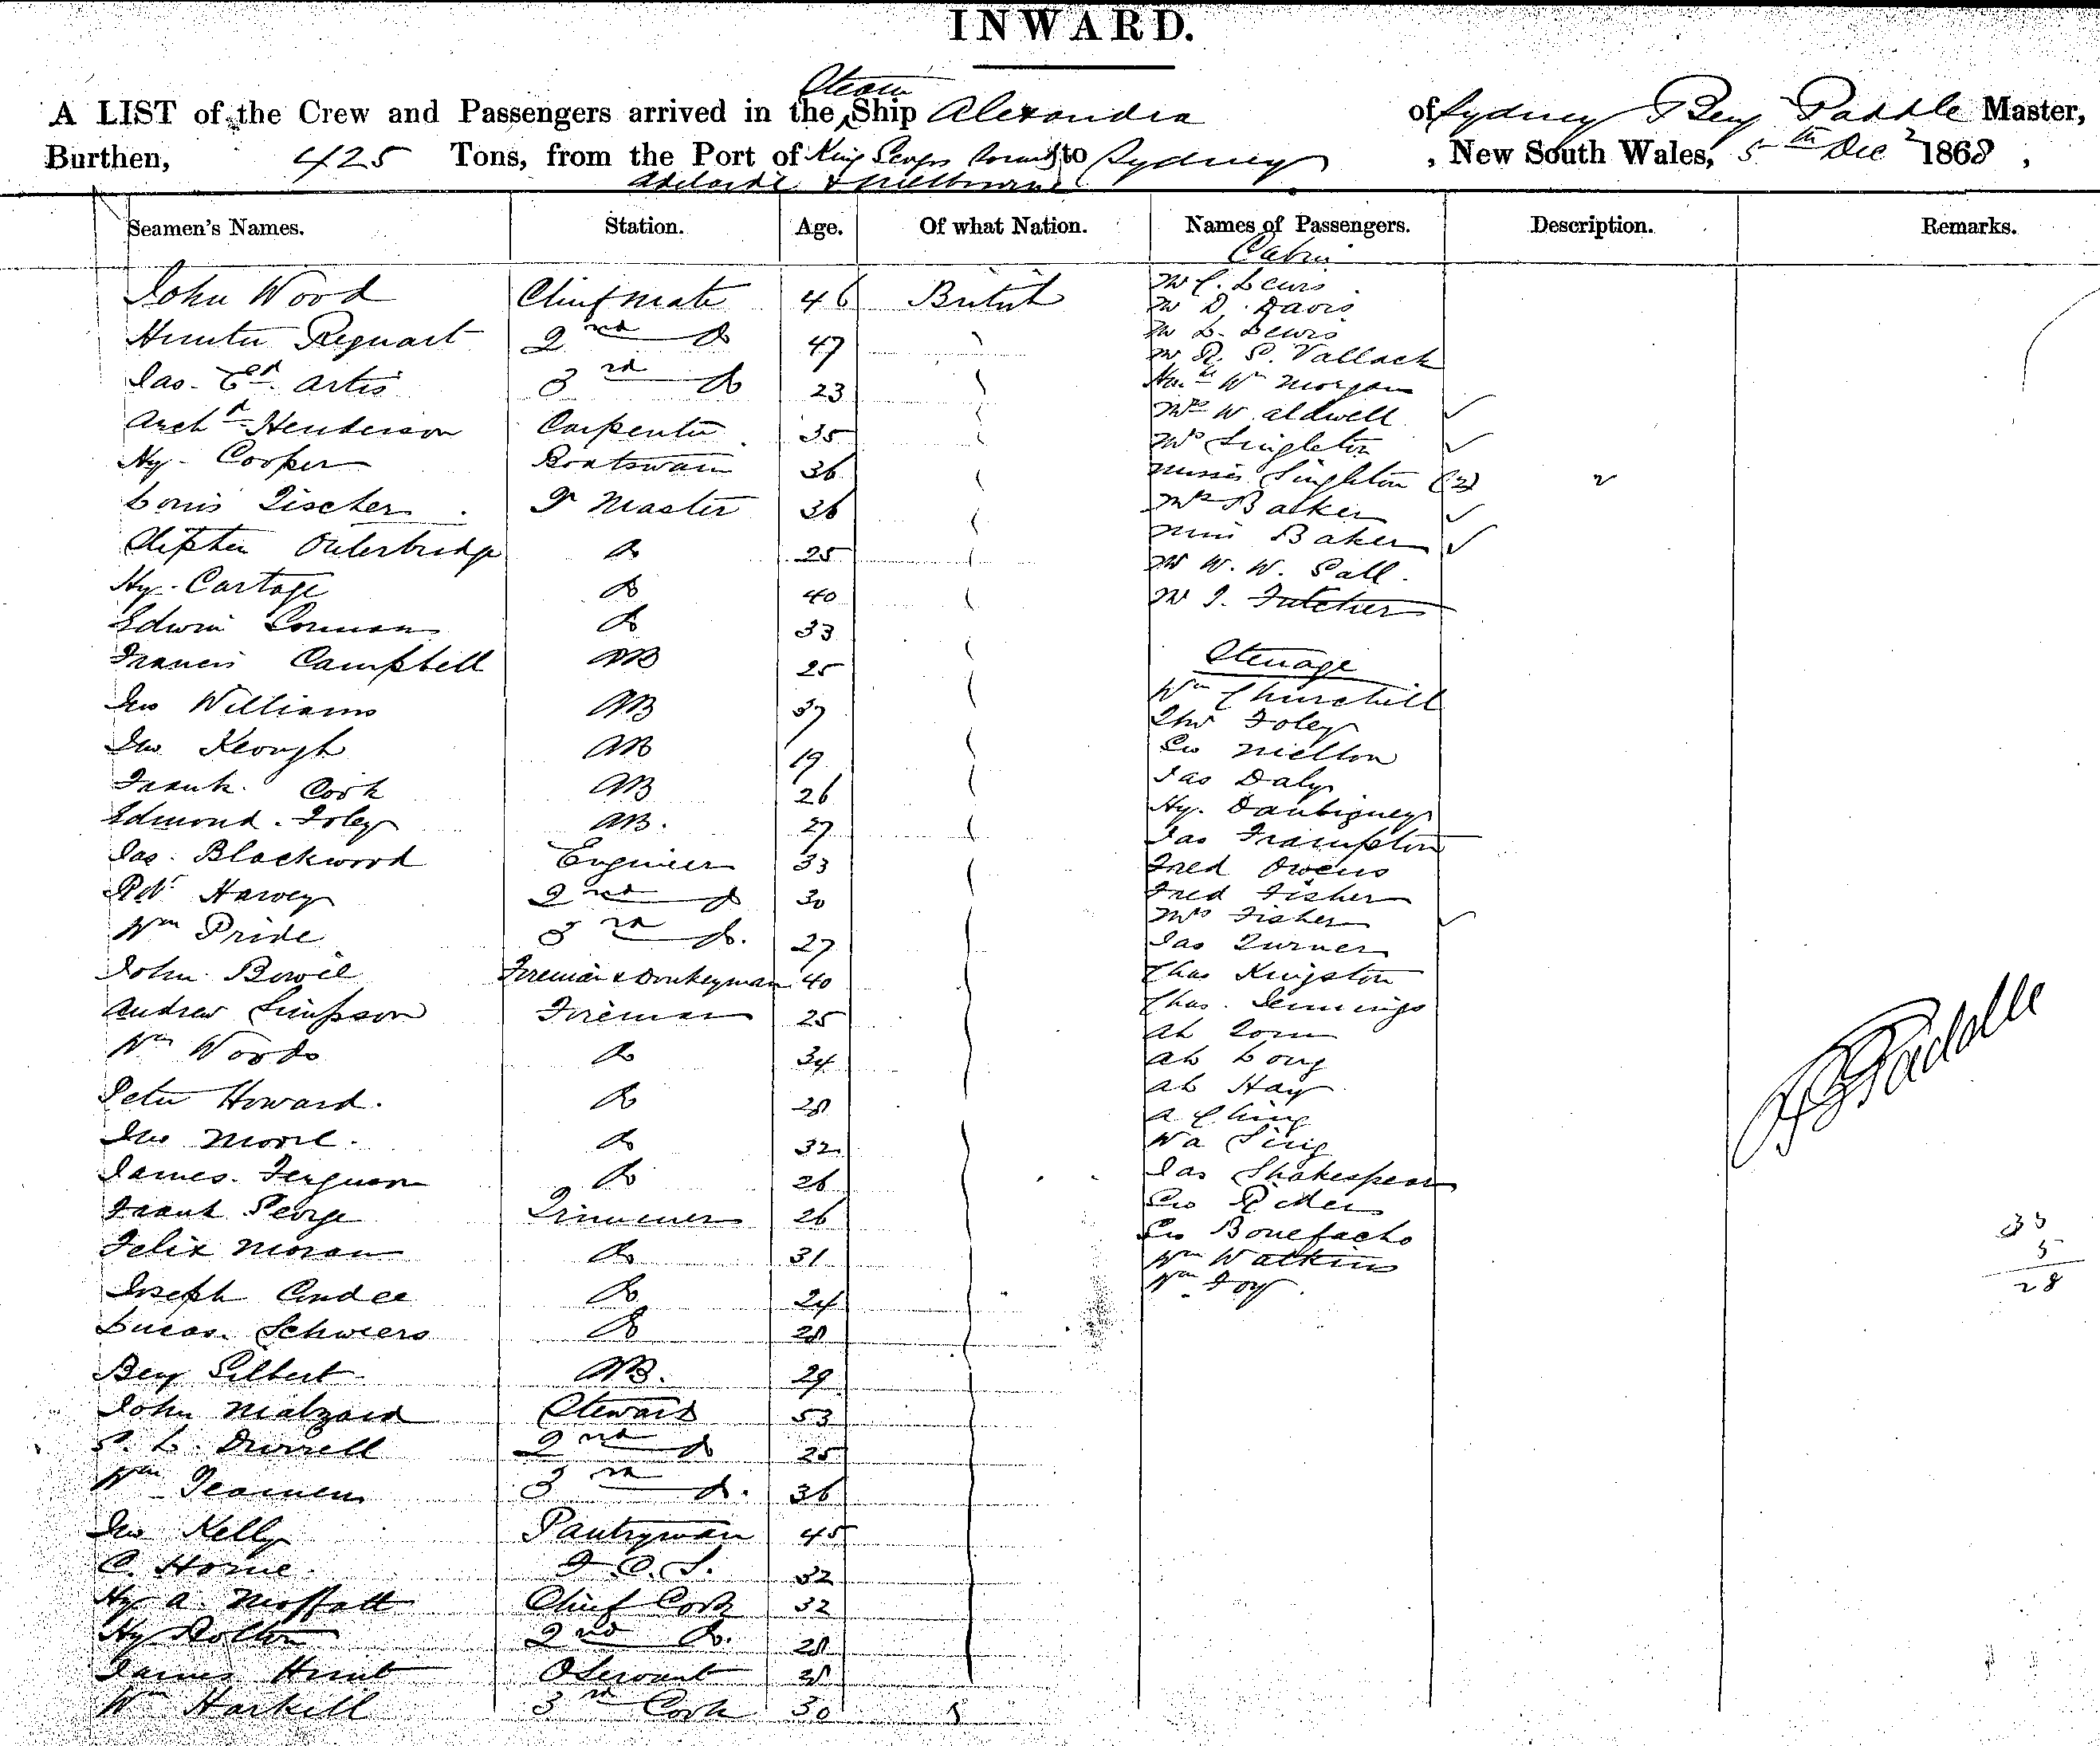 INWARD.
Steam
A LIST of the Crew and Passengers arrived in the Ship Alexandra of Sydney Benj Paddle Master,
Burthen, 425 Tons, from the Port of King Georges Sound to Sydney, New South Wales, 5th Dec 1868,
Adelaide & Melbourne
Seamen's Names. Station. Age. Of what Nation. Names of Passengers. Description. Remarks.
Cabin
John Wood Chief mate 46 British
Hunter 2nd Do 47
Jas. Artis 3rd Do 23
Archd Henderson Carpenter 35
Hy. Cooper Boatswain 36
Louis Tischer Qr Master 36
Stephen Outerbridge Do 25
Hy. Cartage Do 40
Edwin Do 33
Francis Campbell AB 25
Jno Williams AB 37
Jno Keough AB 19
Frank Cook AB 26
Edmond Foley AB. 27
Jas. Blackwood Engineer 33
Robt Harvey 2nd Do 30
Wm Pride 3rd Do. 27
John Fireman & Donkeyman 40
Andrew Simpson Fireman 25
Wm Woods Do 34
Peter Howard. Do 28
Jno Moore. Do 32
James Ferguson Do 26
Frank George Trimmer 26
Felix Moran Do 31
Joseph Do 24
Lucas Schwiers Do 28
Benj Gilbert AB. 29
John Steward 53
2nd Do 25
Wm 3rd Do. 36
Jno Kelly Pantryman 45
C. Horne 32
Hy A. Moffatt Chief Cook 32
Hy 2nd Do. 28
James Hunt 28
Wm Harkell 3rd Cook 30
Mr C. Lewis
Mr D. Davis
Mr L. Lewis
Mr R. P. Vallack
Wm Morgan
Mrs Waldwell
Mrs Singleton
Misses Singleton (2)
Mrs Barker
Miss Baker
Mr W. W. Gall.
Mr J. Futcher
Steerage
Wm Churchill
Thos Foley
Geo Mellon
Jas Daly
Hy. Daubigney
Jas Frampton
Fred Owens
Fred Fisher
Mrs Fisher
Jas Turner
Chas Kingston
Chas. Jennings
Ah Tom
Ah Long
Ah Hay
A Ching
Wa Sing
Jas Shakespear
Geo Rider
Geo Bonefacho
Wm Watkins
Wm Foy
B Paddle
33
5
28